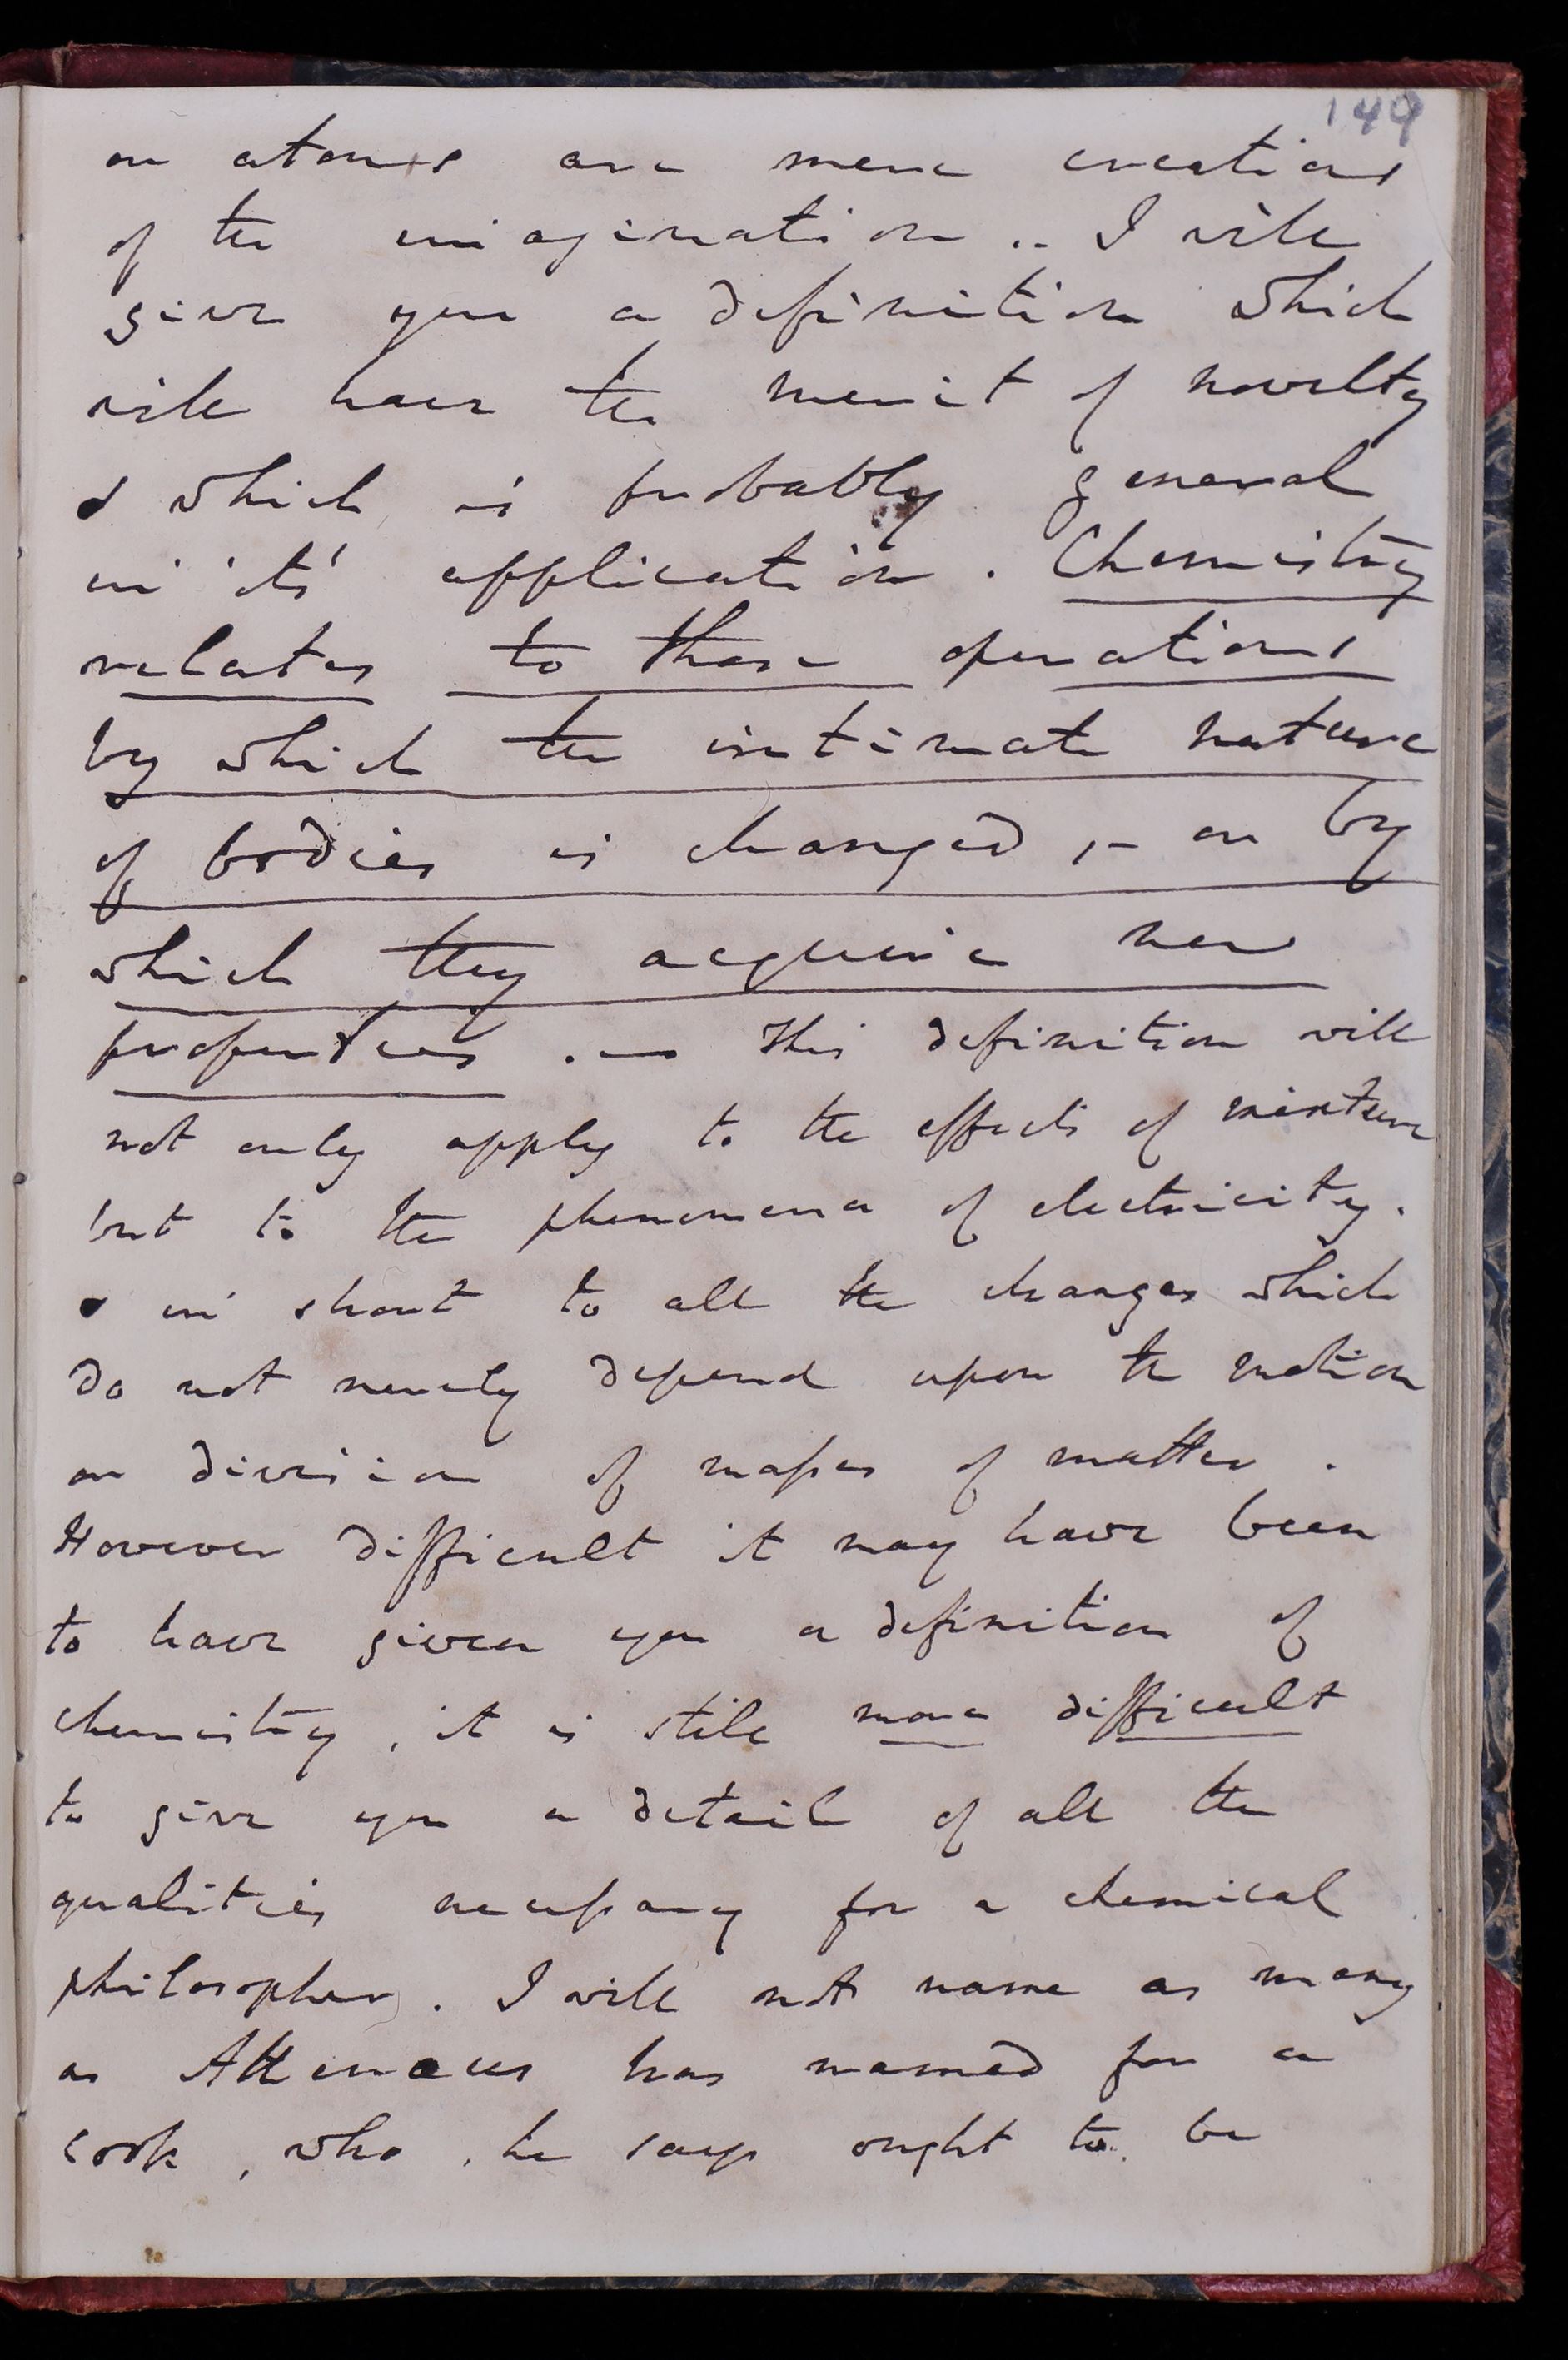 149
or atoms are mere creations
of the imagination .. I will
give you a definition which
will have the merit of novelty
& which is probably general
in its' application . Chemistry
relates to those operations
by which the intimate nature
of bodies is changed , – or by
which they acquire new
properties . — This definition will
not only apply to the effects of mixture
but to the phenomena of electricity .
& in short to all the changes which
do not merely depend upon the motion
or division of masses of matter .
However difficult it may have been
to have given you a definition of
chemistry , it is still more difficult
to give you a detail of all the
qualities necessary for a chemical
philosopher . I will not name as many
as Athenaeus has named for a
cook , who , he says ought to be